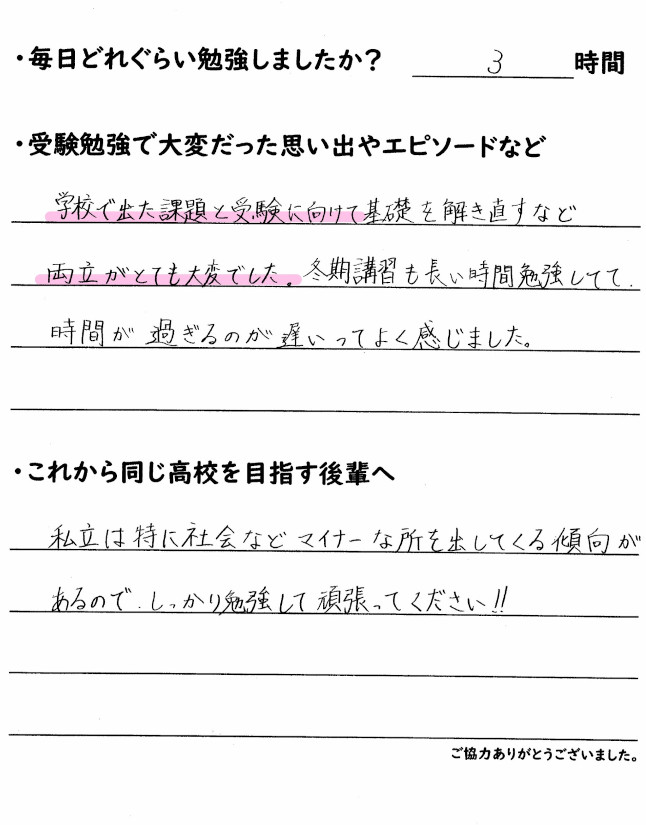 ・毎日どれぐらい勉強しましたか？ 3 時間
・受験勉強で大変だった思い出やエピソードなど
学校で出た課題と受験に向けて基礎を解き直すなど
両立がとても大変でした。冬期講習も長い時間勉強してて、
時間が過ぎるのが遅いってよく感じました。
・これから同じ高校を目指す後輩へ
私立は特に社会などマイナーな所を出してくる傾向が
あるので、しっかり勉強して頑張ってください!!
ご協力ありがとうございました。